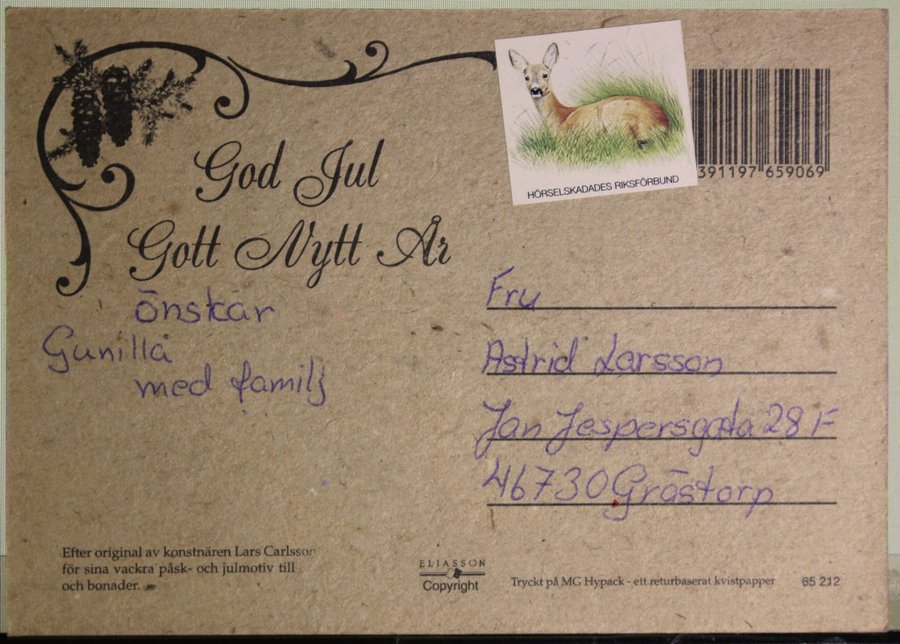 God Jul
Gott Nytt År
önskar
Gunilla
med familj
HÖRSELSKADADES RIKSFÖRBUND
391197 659069
Fru
Astrid Larsson
Jan Jespersgata 28 F
46730 Grästorp
Efter original av konstnären Lars Carlsson
för sina vackra påsk- och julmotiv till
och bonader.
ELIASSON
Copyright
Tryckt på MG Hypack - ett returbaserat kvistpapper
65 212